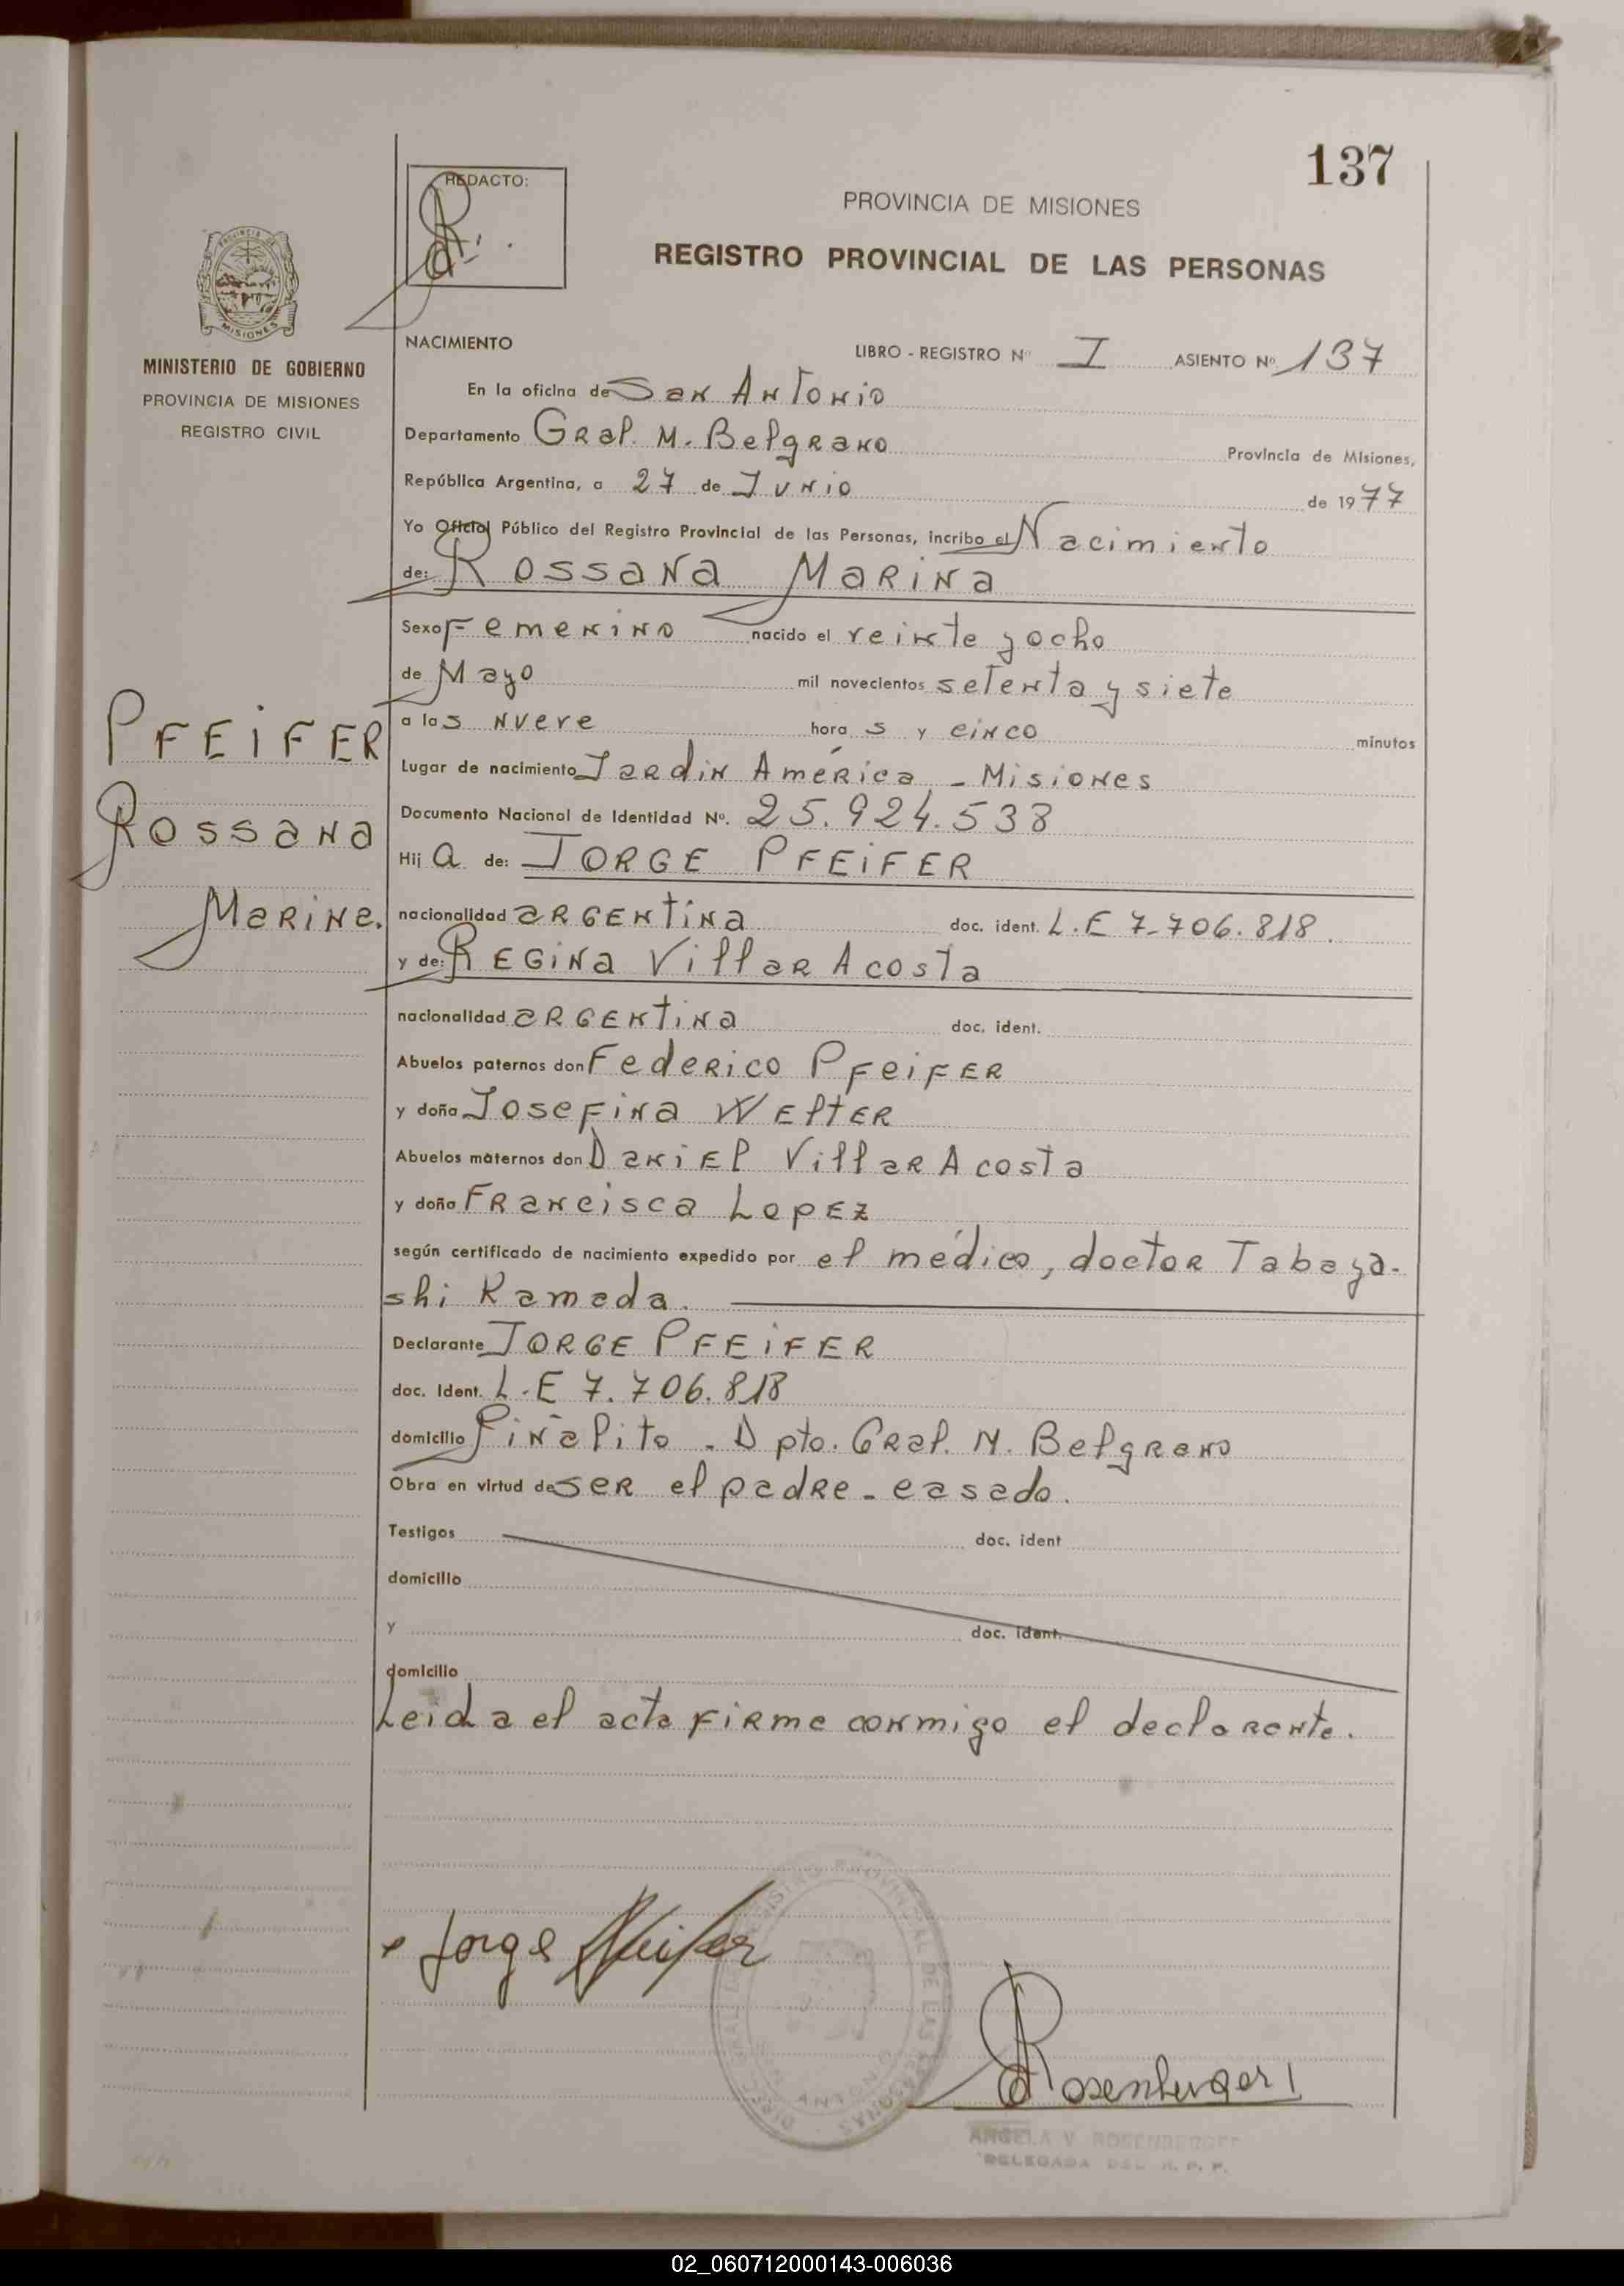 137
REDACTO:
PROVINCIA DE MISIONES
REGISTRO PROVINCIAL DE LAS PERSONAS
MISIONES
MINISTERIO DE GOBIERNO
PROVINCIA DE MISIONES
REGISTRO CIVIL
NACIMIENTO
LIBRO - REGISTRO Nº I ASIENTO Nº 137
En la oficina de San Antonio
Departamento Gral. M. Belgrano Provincia de Misiones,
República Argentina, a 27 de Junio de 1977
Yo Oficial Público del Registro Provincial de las Personas, incribo el Nacimiento
de: Rossana Marina
Sexo Femenino nacido el veinte y ocho
de Mayo mil novecientos setenta y siete
a las nueve hora s y cinco minutos
Lugar de nacimiento Jardin América - Misiones
Documento Nacional de Identidad Nº. 25.924.538
Hij a de: JORGE PFEiFER
nacionalidad argentina doc. ident. L.E 7.706.818.
y de: REGiNa Villar Acosta
nacionalidad argentina doc. ident.
Abuelos paternos don Federico Pfeifer
y doña Josefina Welter
Abuelos maternos don Daniel Villar Acosta
y doña Francisca Lopez
según certificado de nacimiento expedido por el médico, doctor Tabaya-
shi Kameda.
Declarante JORGE PFEiFER
doc. Ident. L.E 7.706.818
domicilio Piñalito - Dpto. Gral. M. Belgrano
Obra en virtud de ser el padre - casado.
Testigos doc. ident
domicilio
y doc. ident.
domicilio
Leida el acta firma conmigo el declarante.
PFEiFER
Rossana
Marina.
Jorge Pfeifer
Rosenberger
ANGELA V. ROSENBERGER
DELEGADA DEL R. P. P.
02_060712000143-006036